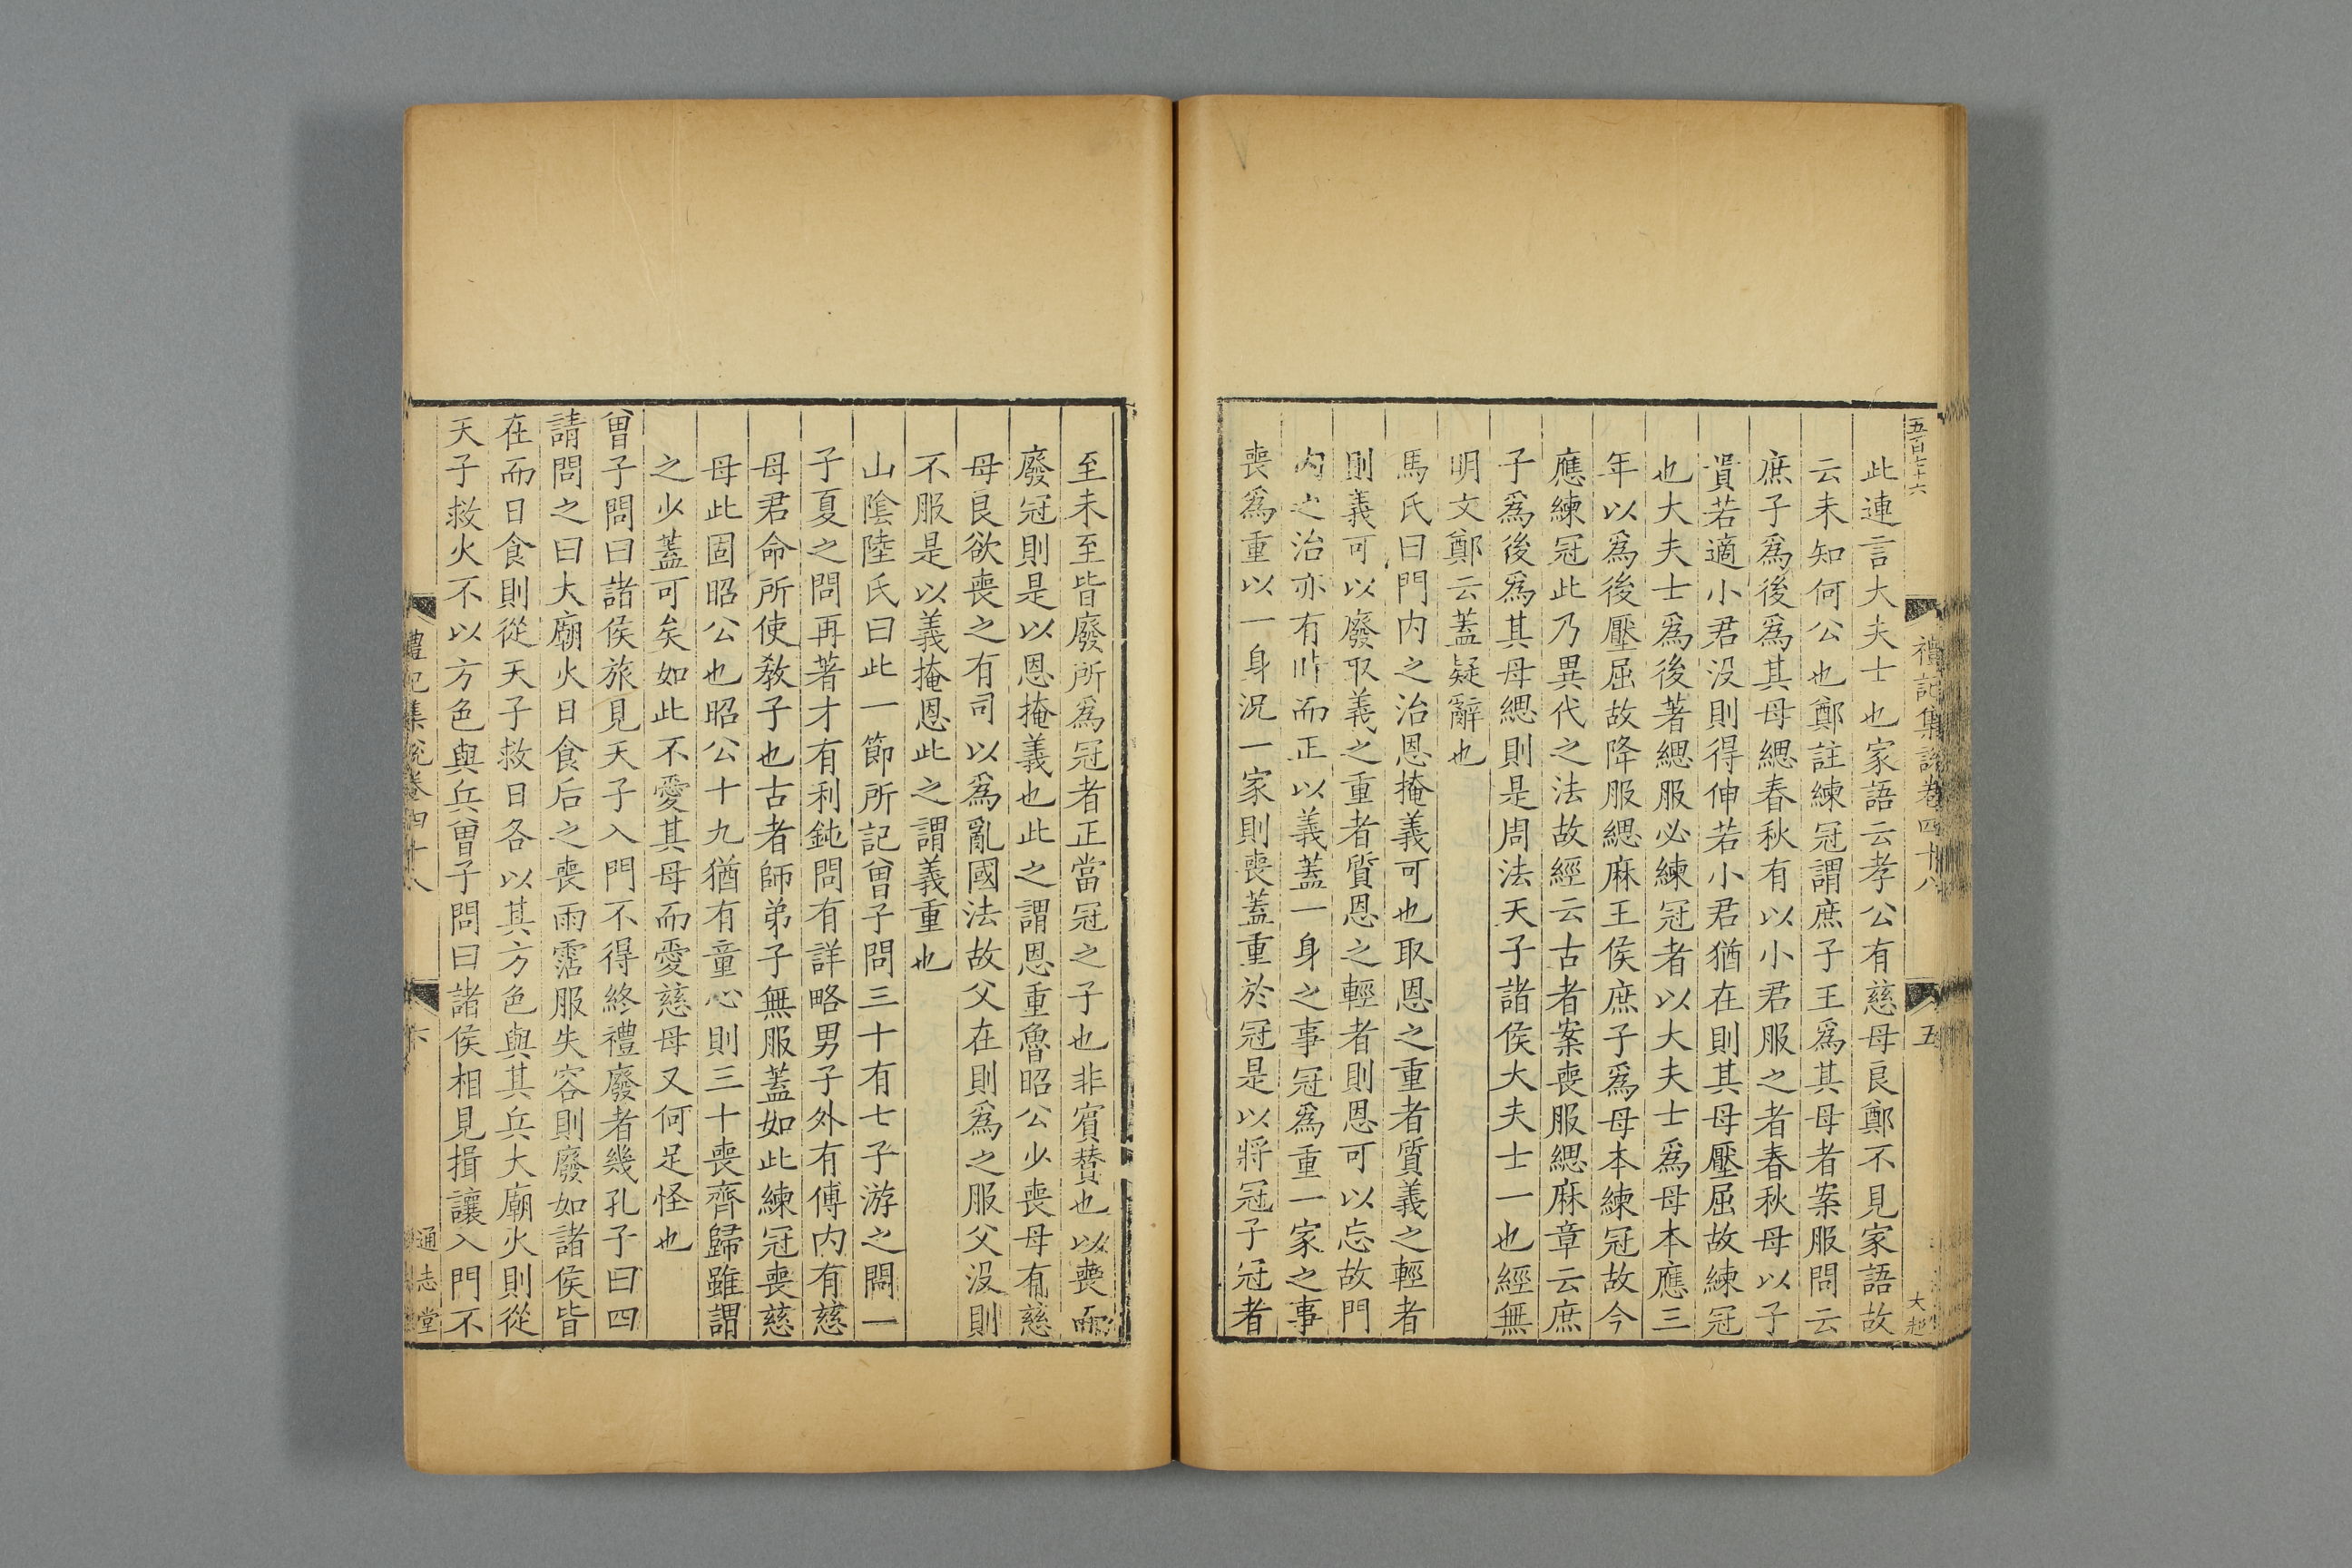 五百七十六
禮記集說卷四十八
五
大起
此連言大夫士也家語云孝公有慈母良鄭不見家語故
云未知何公也鄭註練冠謂庶子王爲其母者案服問云
庶子爲後爲其母緦春秋有以小君服之者春秋母以子
貴若適小君没則得伸若小君猶在則其母壓屈故練冠
也大夫士爲後著緦服必練冠者以大夫士爲母本應三
年以爲後壓屈故降服緦麻王侯庶子爲母本練冠故今
應練冠此乃異代之法故經云古者案喪服緦麻章云庶
子爲後爲其母緦則是周法天子諸侯大夫士一也經無
明文鄭云蓋疑辭也
馬氏曰門内之治恩掩義可也取恩之重者質義之輕者
則義可以廢取義之重者質恩之輕者則恩可以忘故門
内之治亦有時而正以義蓋一身之事冠爲重一家之事
喪爲重以一身况一家則喪蓋重於冠是以將冠子冠者
至未至皆廢所爲冠者正當冠之子也非賓賛也以喪而
廢冠則是以恩掩義也此之謂恩重魯昭公少喪母有慈
母良欲喪之有司以爲亂國法故父在則爲之服父没則
不服是以義掩恩此之謂義重也
山陰陸氏曰此一節所記曾子問三十有七子游之問一
子夏之問再著才有利鈍問有詳略男子外有傅内有慈
母君命所使教子也古者師弟子無服蓋如此練冠喪慈
母此固昭公也昭公十九猶有童心則三十喪齊歸雖謂
之少蓋可矣如此不愛其母而愛慈母又何足怪也
曾子問曰諸侯旅見天子入門不得終禮廢者幾孔子曰四
請問之曰大廟火日食后之喪雨霑服失容則廢如諸侯皆
在而日食則從天子救日各以其方色與其兵大廟火則從
天子救火不以方色與兵曾子問曰諸侯相見揖讓入門不
禮記集說卷四十八
通志堂